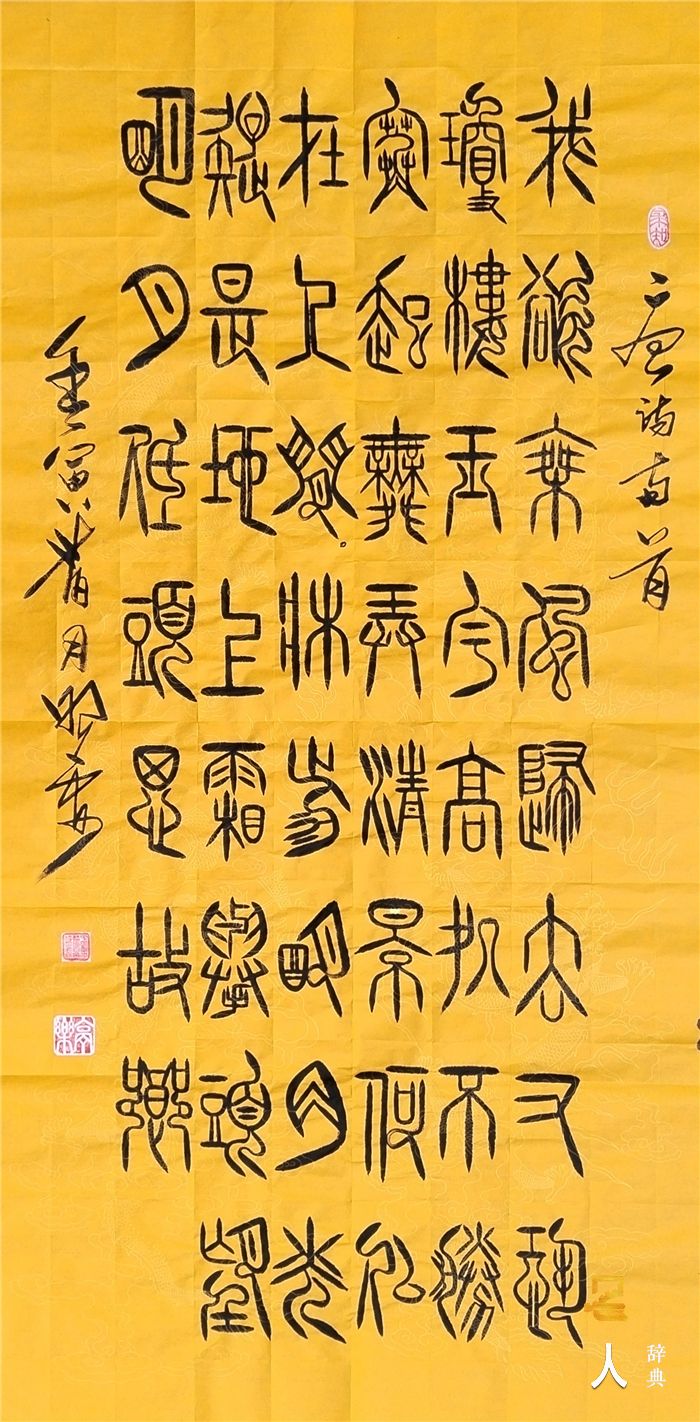 唐诗首
我欲乘風歸去又恐
瓊樓玉宇高処不勝
寒起舞弄清影何似
在人間牀前明月光
疑是地上霜舉頭望
明月低頭思故鄉
壬寅腊月
人
辞典